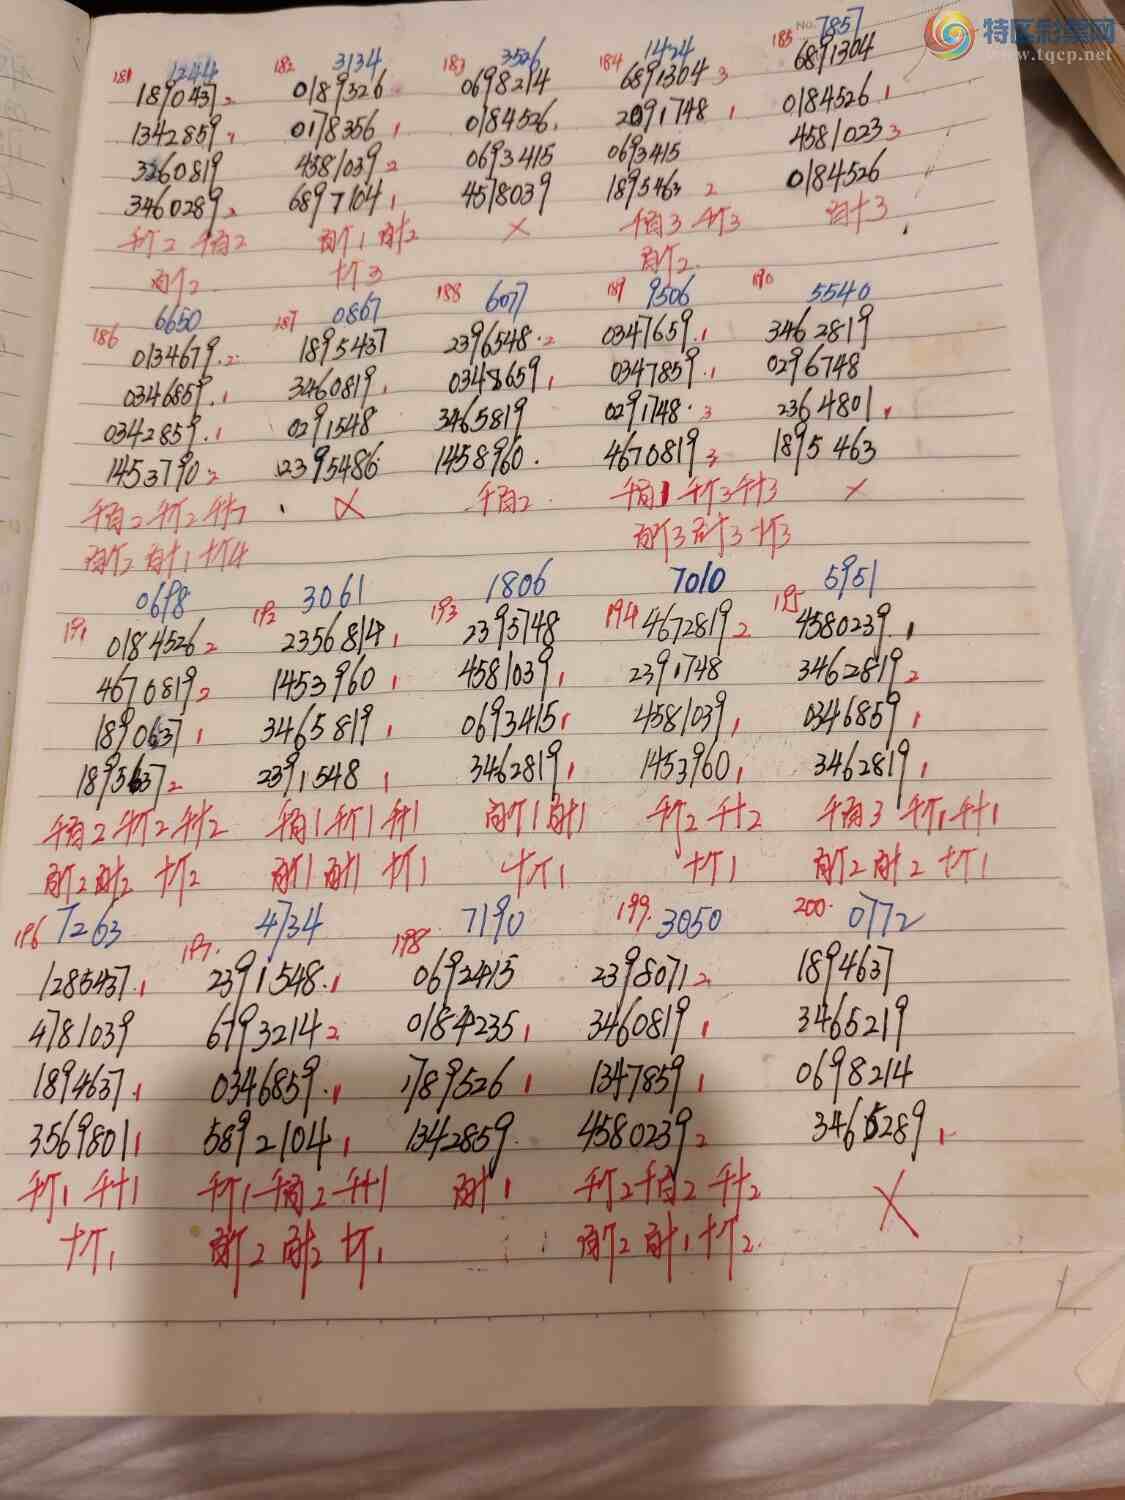 特区彩票网
www.tqcp.net
No.
181 1244
1890437 2
1342859 2
3260819
3460289 2
千个2 千百2
百个2
182 3134
0189326
0178356 1
4581039 2
6897104 1
百个1 百十2
十个3
183 3526
0698214
0184526.
0693415
4578039
X
184 1424
6891304 3
2091748 1
0693415
1895463 2
千百3 千个3
百个2
185 7857
6891304
0184526 1
4581023 3
0184526
百十3
186 6650
0134679.2
0346859.1
0342859.1
1453790 2
千百2 千个2 千十2
百个2 百十1 十个4
187 0867
1895437
3460819.
0291548
2395486
X
188 6077
2396548.2
0348659 1
3465819
1458960.
千百2
189 9506
0347659.1
0347859.1
0291748.3
4670819 3
千百1 千个3 千十3
百个3 百十3 十个3
190 5540
3462819
0296748
2364801 1
1895463
X
191 0698
0184526 2
4670819 2
1890637 1
1895637 2
千百2 千个2 千十2
百个2 百十2 十个2
192 3061
2356814 1
1453960 1
3465819 1
2391548 1
千百1 千个1 千十1
百个1 百十1 十个1
193 1806
2395748
4581039 1
0693415 1
3462819 1
百个1 百十1
十个1
194 7010
4672819 2
2391748
4581039 1
1453960 1
千个2 千十2
十个1
195 5951
4580239 1
3462819 2
0346859 1
3462819 1
千百3 千个1 千十1
百个2 百十2 十个1
196 7263
1285437.1
4781039
1894637.1
3569801 1
千个1 千十1
十个1
197. 4734
2391548.1
6793214 2
0346859.1
5892104 1
千个1 千百2 千十1
百个2 百十2 十个1
198 7190
0692415
0184235 1
1789526 1
1342859.
百十1
199. 3050
2398071 2
3460819 1
1347859 1
4580239 2
千个2 千百2 千十2
百个2 百十1 十个2.
200. 0772
1894637
3465219
0698214
3465289 1
X